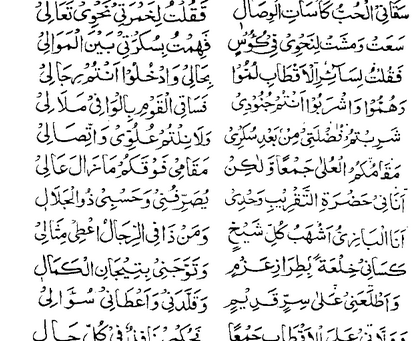 سَقَانِي الْحُبُّ كَاسَاتِ الْوِصَالِ فَقُلْتُ لِخَمْرَتِي نَحْوِي تَعَالِي
سَعَتْ وَمَشَتْ لِنَحْوِي فِي كُؤُسٍ فَهِمْتُ بِسُكْرَتِي بَيْنَ الْمَوَالِي
فَقُلْتُ لِسَائِرِ الْاَقْطَابِ لُمُّوا بِحَالِي وَادْخُلُوا اَنْتُمْ رِجَالِي
وَهُمُّوا وَاشْرَبُوا اَنْتُمْ جُنُودِي فَسَاقِي الْقَوْمِ بِالْوَافِي مَلَالِي
شَرِبْتُمْ فُضْلَتِي مِنْ بَعْدِ سُكْرِي وَلَا نِلْتُمْ عُلُوِّي وَاتِّصَالِي
مَقَامُكُمُ الْعُلٰى جَمْعًا وَّلٰكِنْ مَقَامِي فَوْقَكُمْ مَا زَالَ عَالِي
اَنَا فِي حَضْرَةِ التَّقْرِيبِ وَحْدِي يُصَرِّفُنِي وَحَسْبِي ذُو الْجَلَالِ
اَنَا الْبَازِيُّ اَشْهَبُ كُلِّ شَيْخٍ وَمَنْ ذَا فِي الرِّجَالِ اُعْطِيَ مِثَالِي
كَسَانِي خِلْعَةً بِطِرَازِ عَزْمٍ وَتَوَّجَنِي بِتِيجَانِ الْكَمَالِ
وَاَطْلَعَنِي عَلٰى سِرٍّ قَدِيمٍ وَقَلَّدَنِي وَاَعْطَانِي سُؤَالِي
وَوَلَّانِي عَلَى الْاَقْطَابِ جَمْعًا فَحُكْمِي نَافِذٌ فِي كُلِّ حَالِ